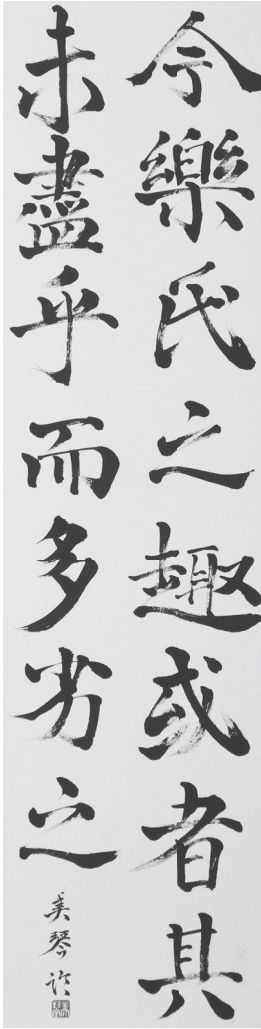 今樂氏之趣或者其
未盡乎而多劣之
美琴